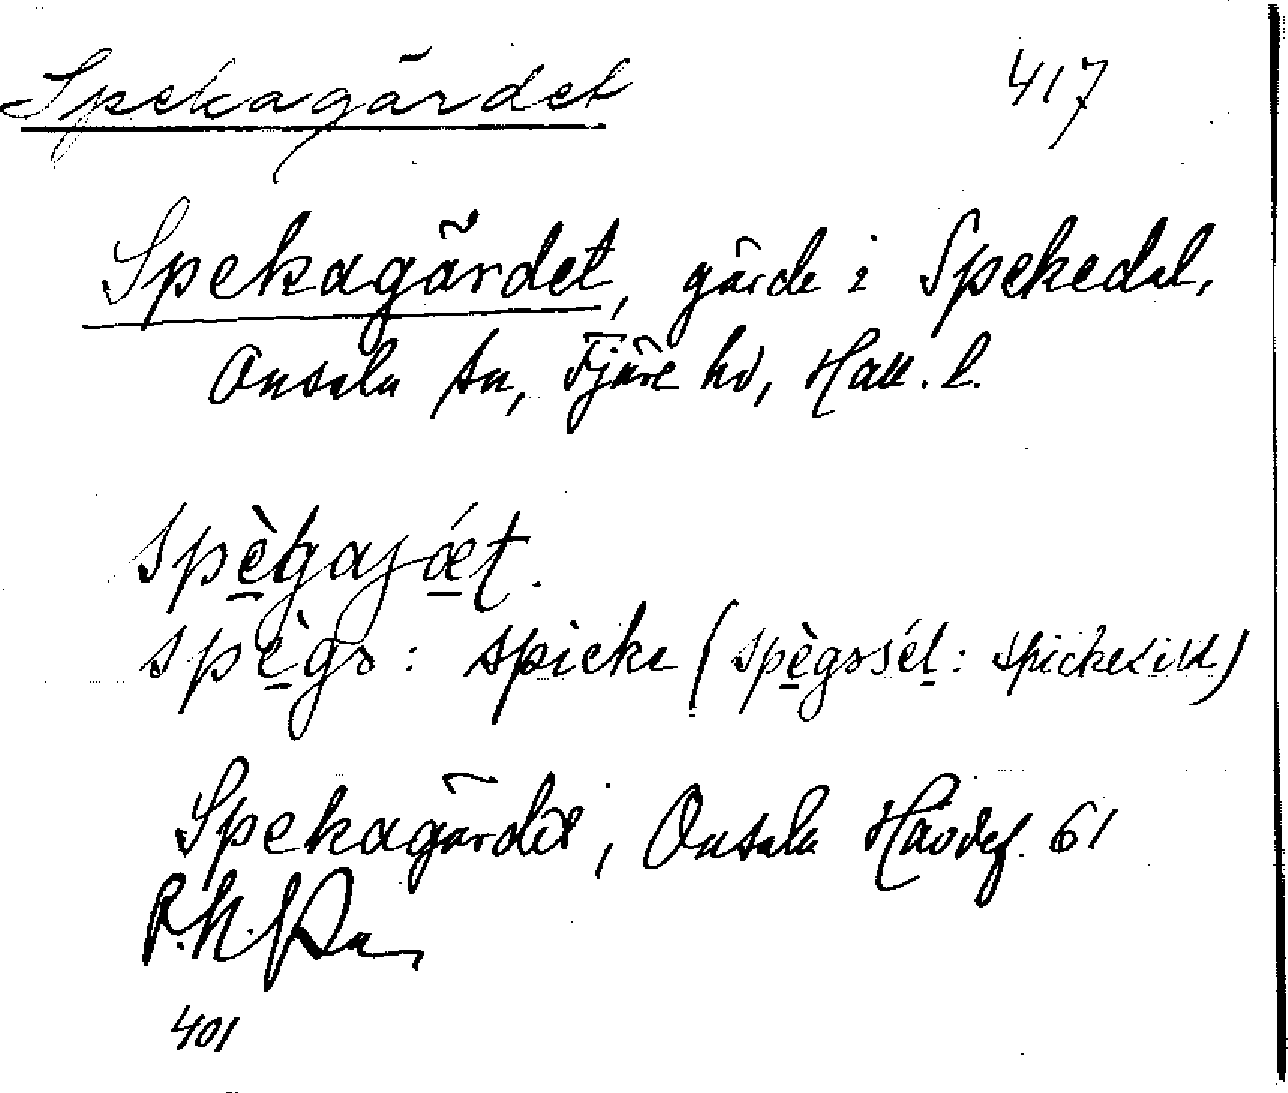 Spekagärdet 417
Spekagärdet, gärde i Spekedal,
Onsala sn, Fjäre hd, Hall. l.
spègajǽt.
spègə: spicke (spègəsél: spickesill)
Spekagärdet, Onsala Hävdef. 61
401